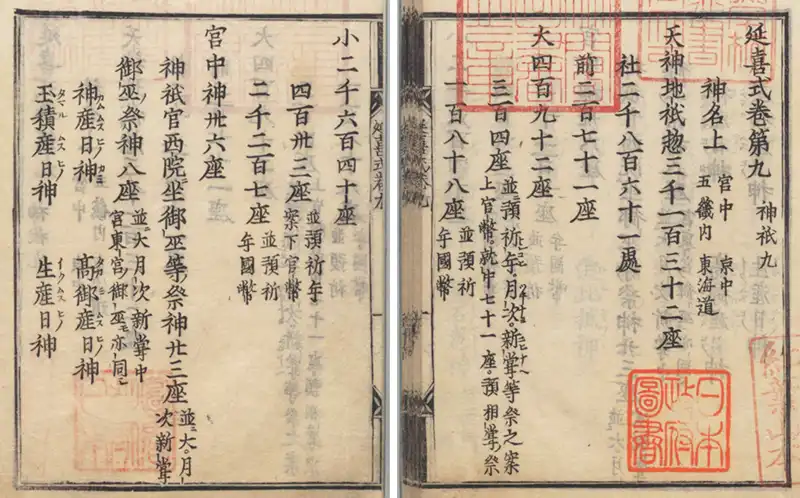 延喜式卷第九 神祇九
神名上 宮中 京中
五畿内 東海道
天神地祇惣三千一百三十二座
社二千八百六十一處
前二百七十一座
大四百九十二座
三百四座 並預祈年。月次。新甞等祭之案
上官幣。就中七十一座。預相甞祭
一百八十八座 並預祈
年國幣
延喜式卷九
小二千六百四十座
四百卅三座 並預祈年
案下官幣
二千二百七座 並預祈
年國幣
宮中神卅六座
神祇官西院坐御巫等祭神廿三座 並大。月
次新甞
御巫祭神八座 並大。月次新甞。中
宮東宮御巫亦同
神産日神 高御産日神
玉積産日神 生産日神
日本
政府
圖書